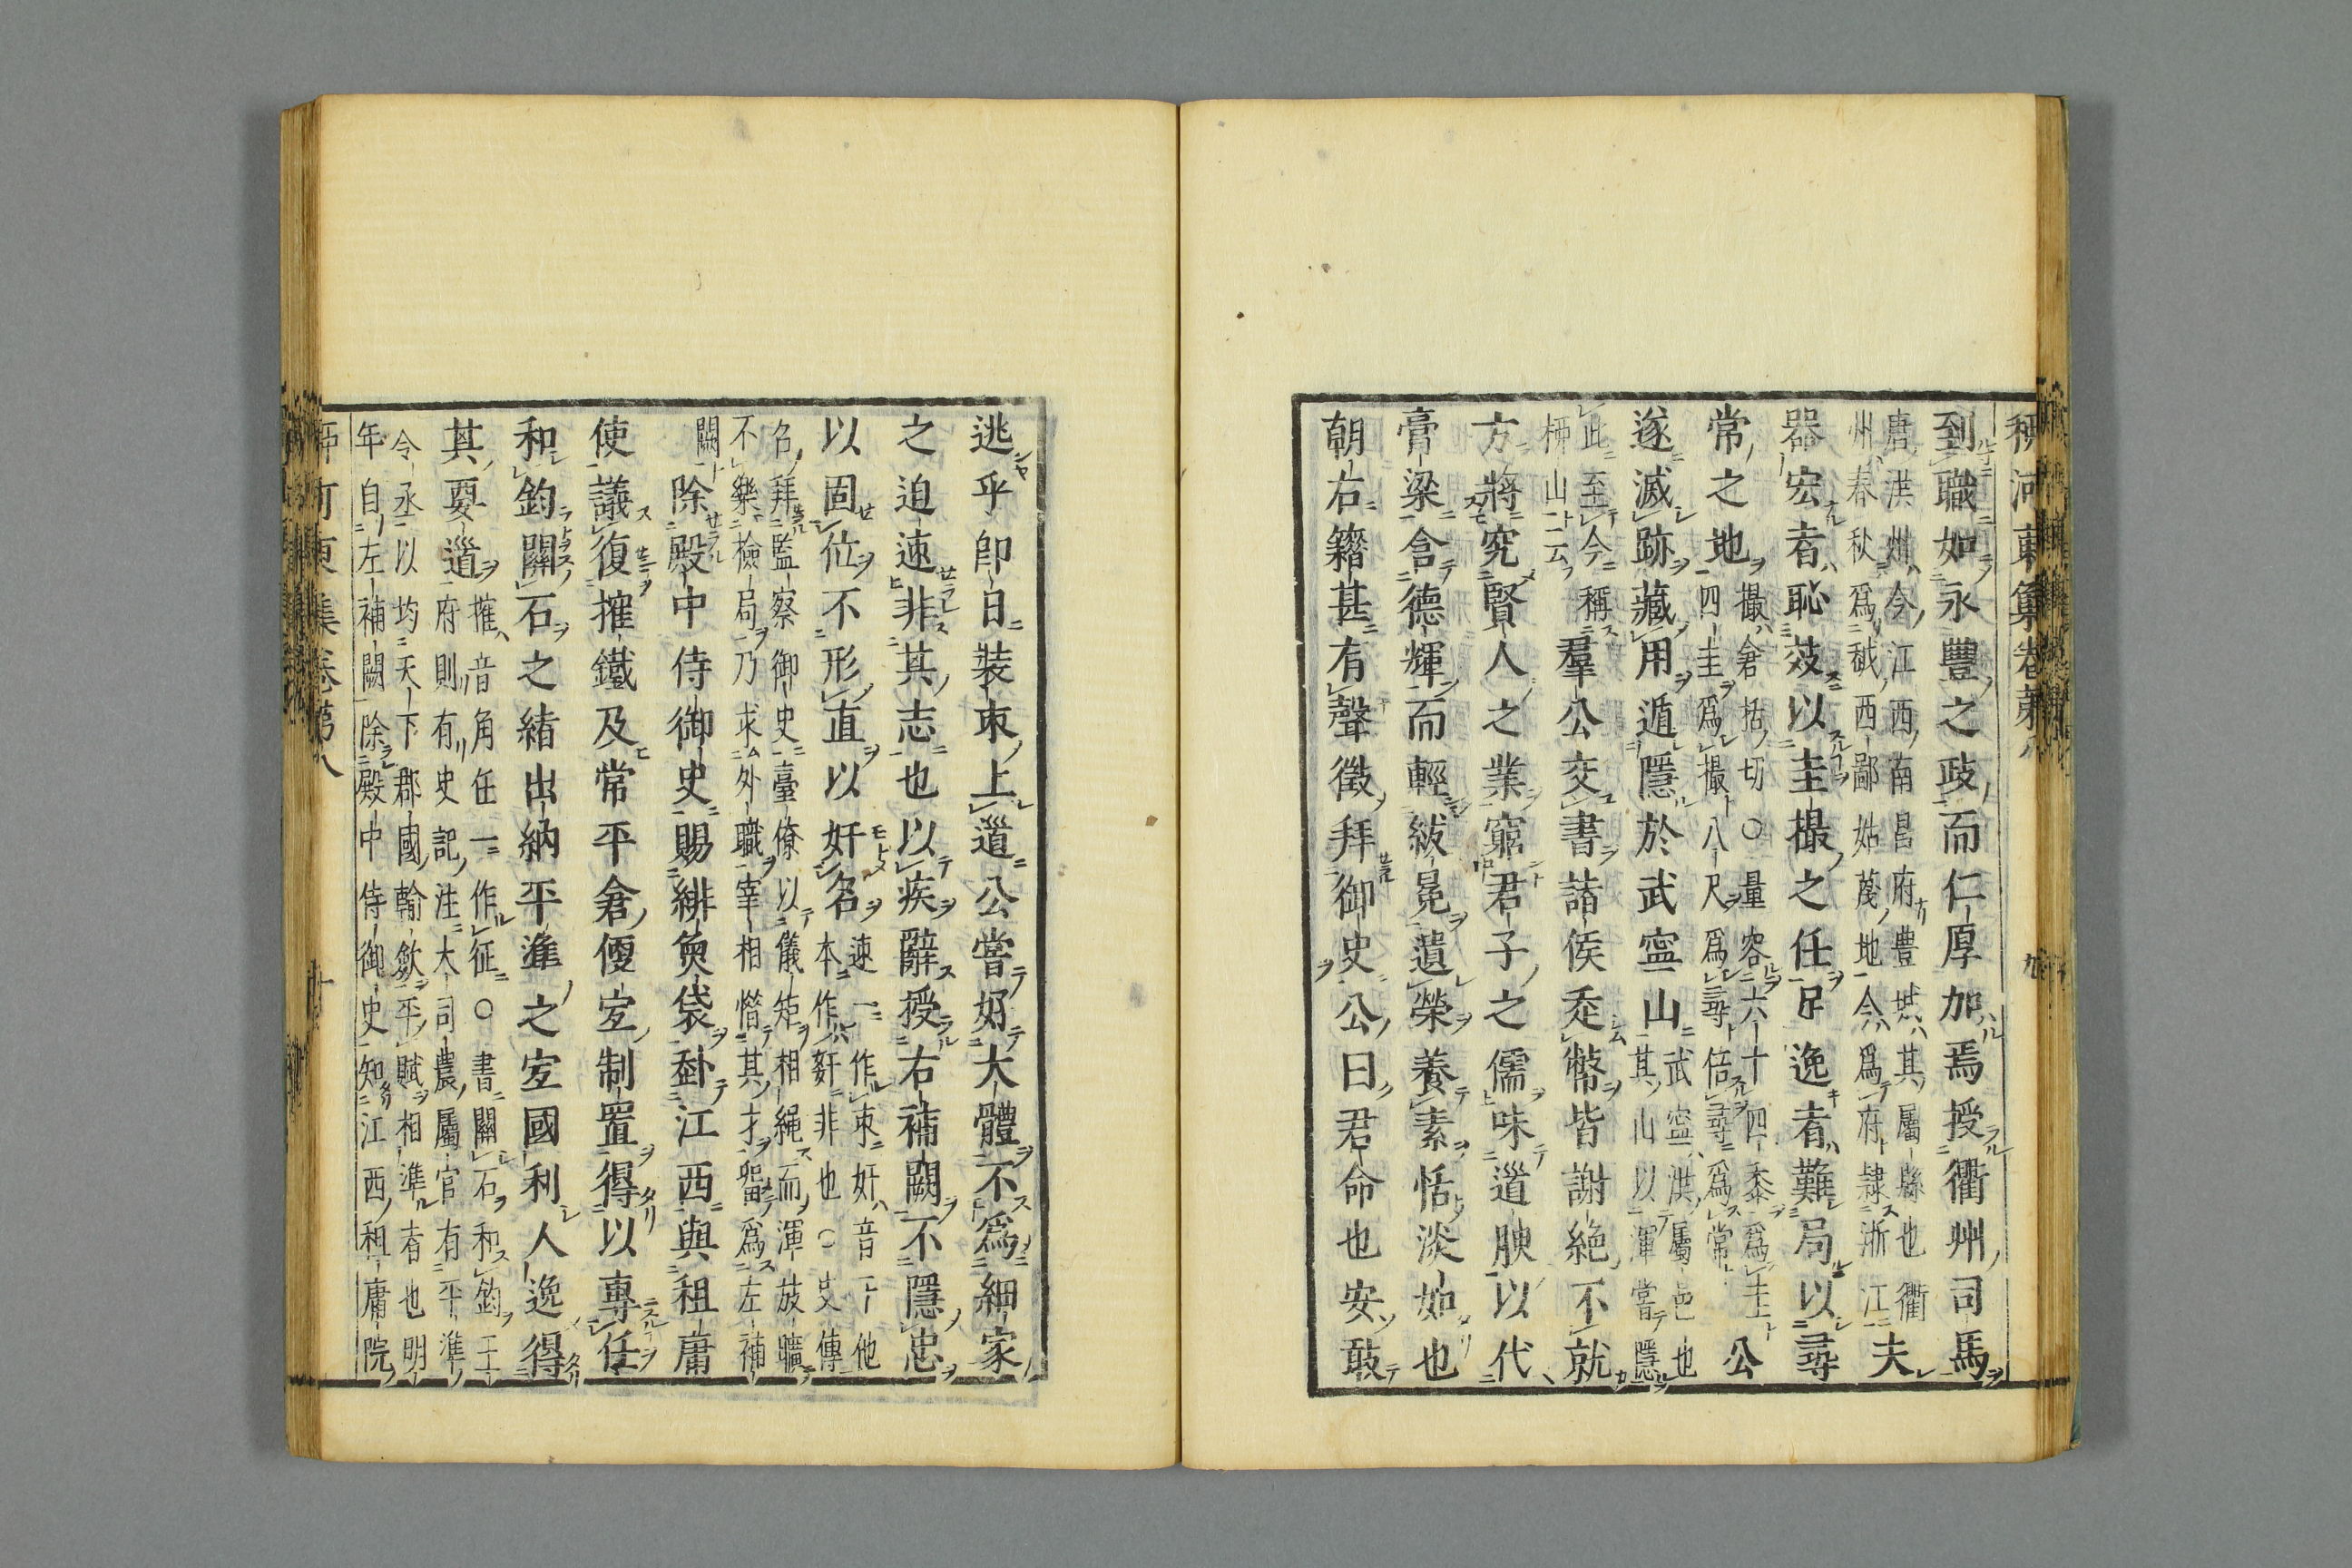 柳河東集卷第八
到職如永豐之政而仁厚加焉授衢州司馬
唐洪州今江西南昌府豊城其屬縣也衢
州春秋爲越西鄙姑蔑地今爲府隸浙江
夫
器宏者恥效以圭撮之任足逸者難局以尋
常之地
撮倉括切○量容六十四黍爲圭
四圭爲撮八尺爲尋倍尋爲常
公
遂滅跡藏用遁隱於武寧山
武寧洪屬邑也
其山以渾嘗隱
此至今稱
柳山云
羣公交書諸侯走幣皆謝絶不就
方將究賢人之業窮君子之儒味道腴以代
膏梁含德輝而輕紱冕遺榮養素恬淡如也
朝右籍甚有聲徵拜御史公曰君命也安敢
九
逃乎卽日裝束上道公嘗好大體不爲細家
之迫速非其志也以疾辭授右補闕不隱忠
以固位不形直以奸名
速一作束奸音干他
本作姧非也○史傳
名拜監察御史臺僚以儀矩相繩而渾放曠
不樂檢局乃求外職宰相惜其才留爲左補
闕
除殿中侍御史賜緋魚袋赴江西與租庸
使議復搉鐵及常平倉便宜制置得以專任
和鈞關石之緒出納平準之宜國利人逸得
其要道
搉音角任一作征○書關石和鈞王
府則有史記注大司農屬官有平準
令丞以均天下郡國輸斂平賦相準者也明
年自左補闕除殿中侍御史知江西租庸院
柳河東集卷第八
十